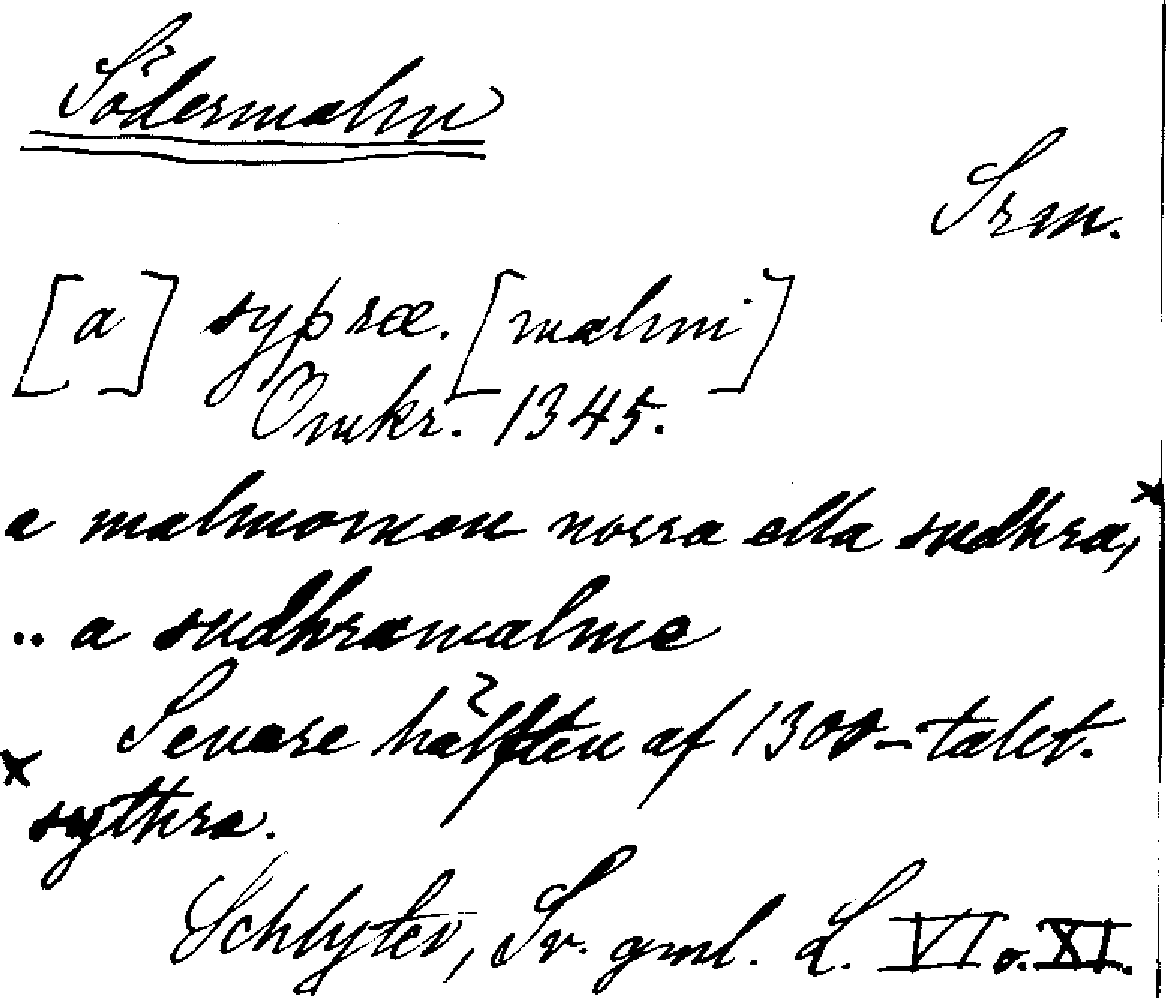 Södermalm
Srm.
[a] syþræ. [malmi]
Omkr. 1345.
a malmomen norra ella sudhra,×
.. a sudhramalme
Senare hälften af 1300-talet.
× sythra.
Schlyter, Sv. gml. L. VI o. XI.